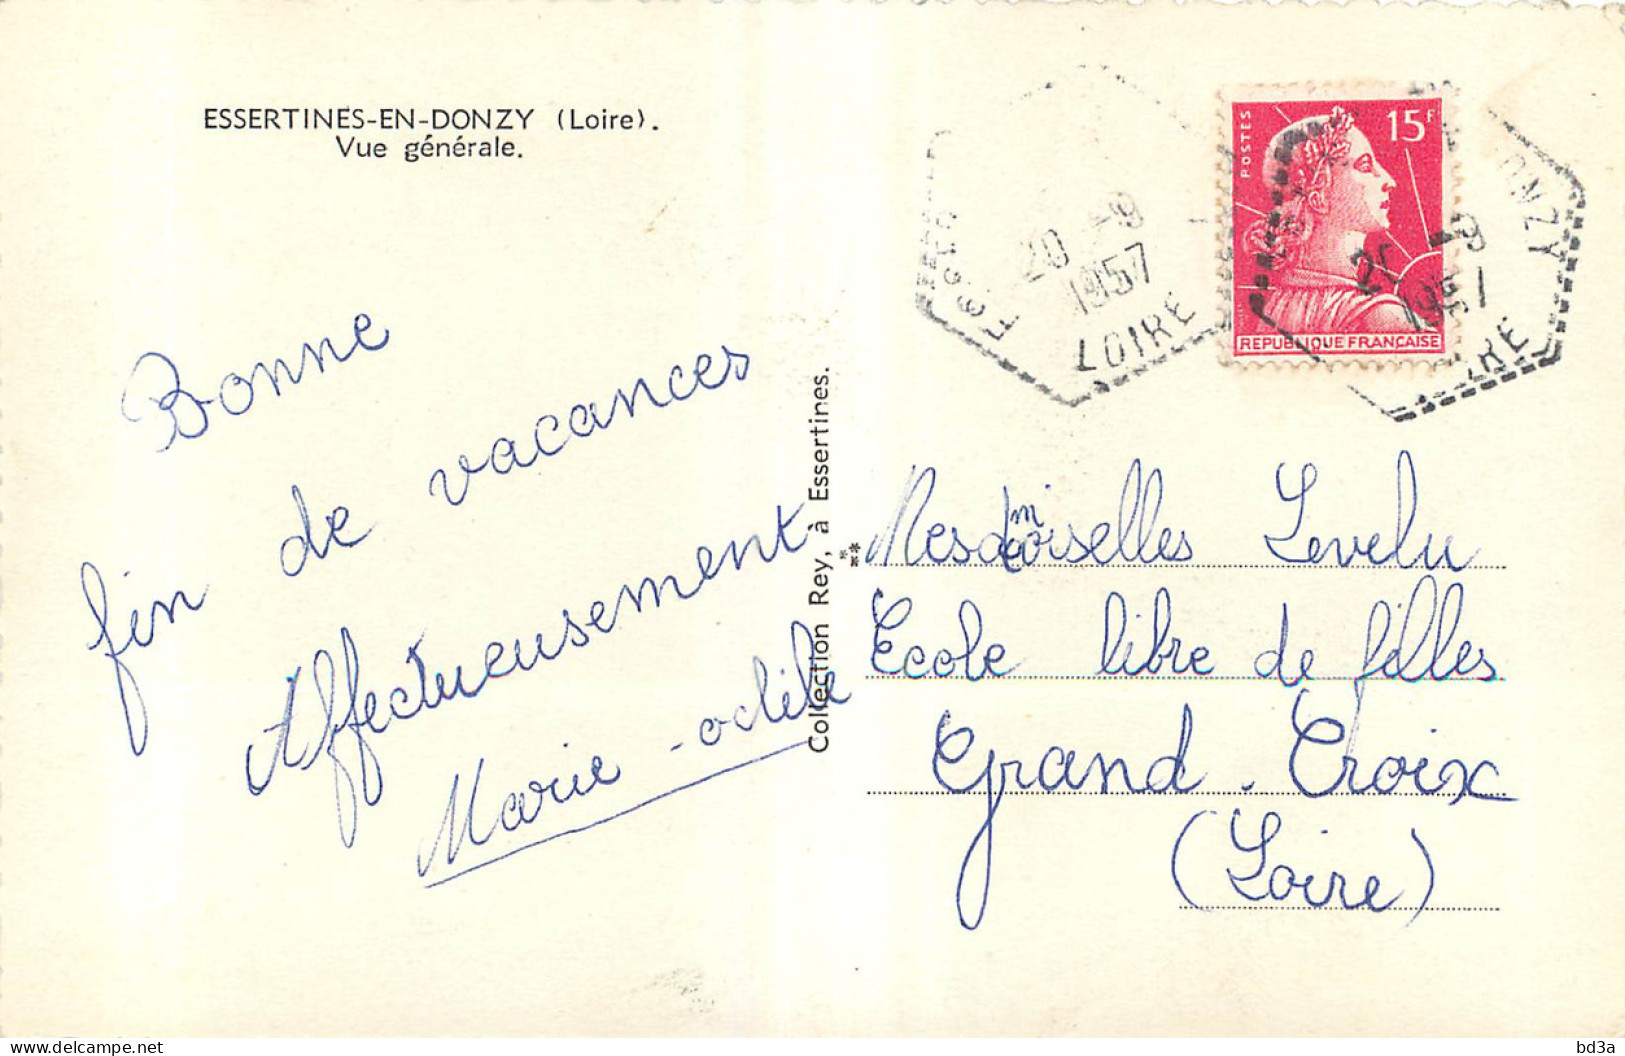 ESSERTINES-EN-DONZY (Loire).
Vue générale.
Bonne
fin de vacances
Affectueusement
Marie-odile
Collection Rey, à Essertines.
POSTES
15F
REPUBLIQUE FRANÇAISE
20 -9
1957
LOIRE
ONZY
-9
1957
Mesdemoiselles Levelu
Ecole libre de filles
Grand-Croix
(Loire)
delcampe.net
bd3a